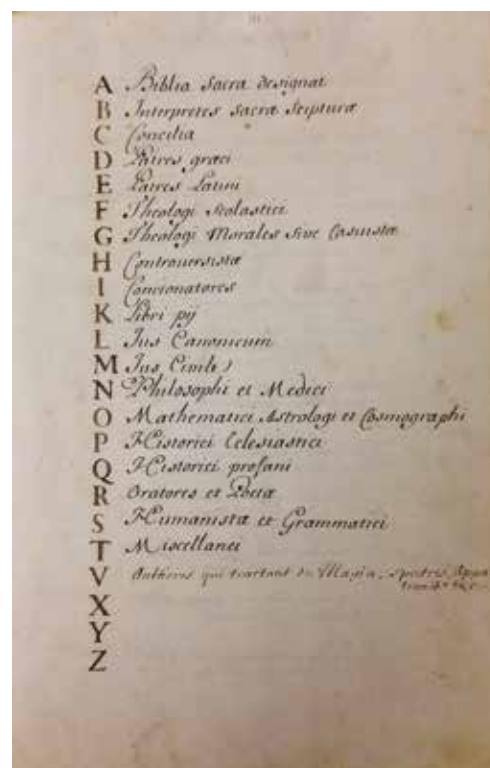 A Biblia Sacra designat
B Interpretes sacræ Scipturæ
C Concilia
D Patres græci
E Patres Latini
F Theologi Scolastici
G Theologi Morales sive Casuistæ
H Controversistæ
I Concionatores
K Libri pij
L Jus Canonicum
M Jus Civile
N Philosophi et Medici
O Mathematici Astrologi et Cosmographi
P Historici Eclesiastici
Q Historici profani
R Oratores et Poetæ
S Humanistæ et Grammatici
T Miscellanei
V Authores qui tractant de Magia, spectris,
X
Y
Z